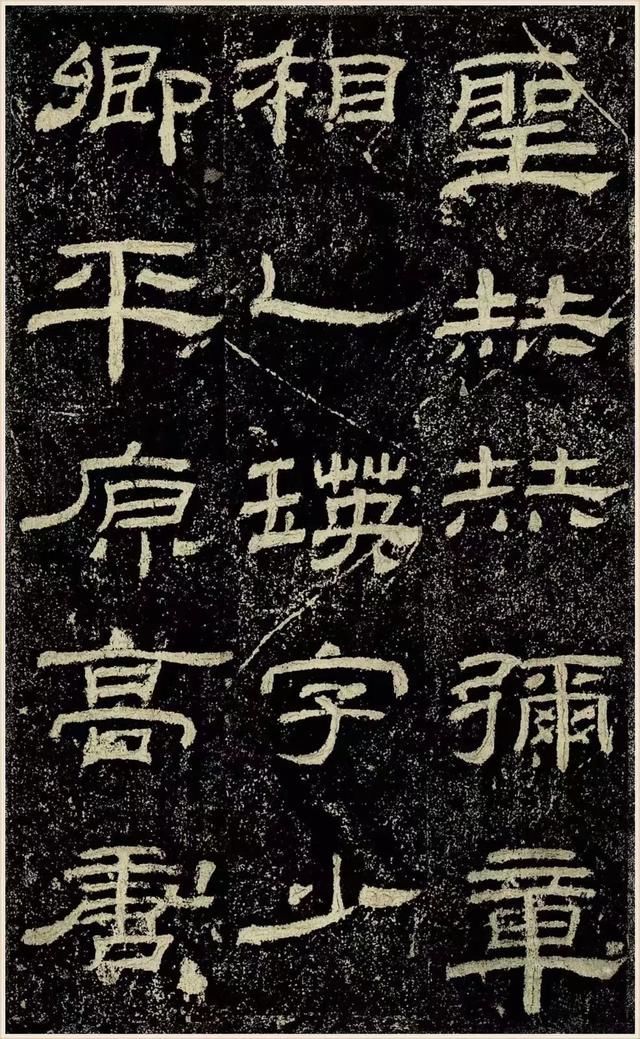 聖赫赫彌章
相乙瑛字少
卿平原高唐